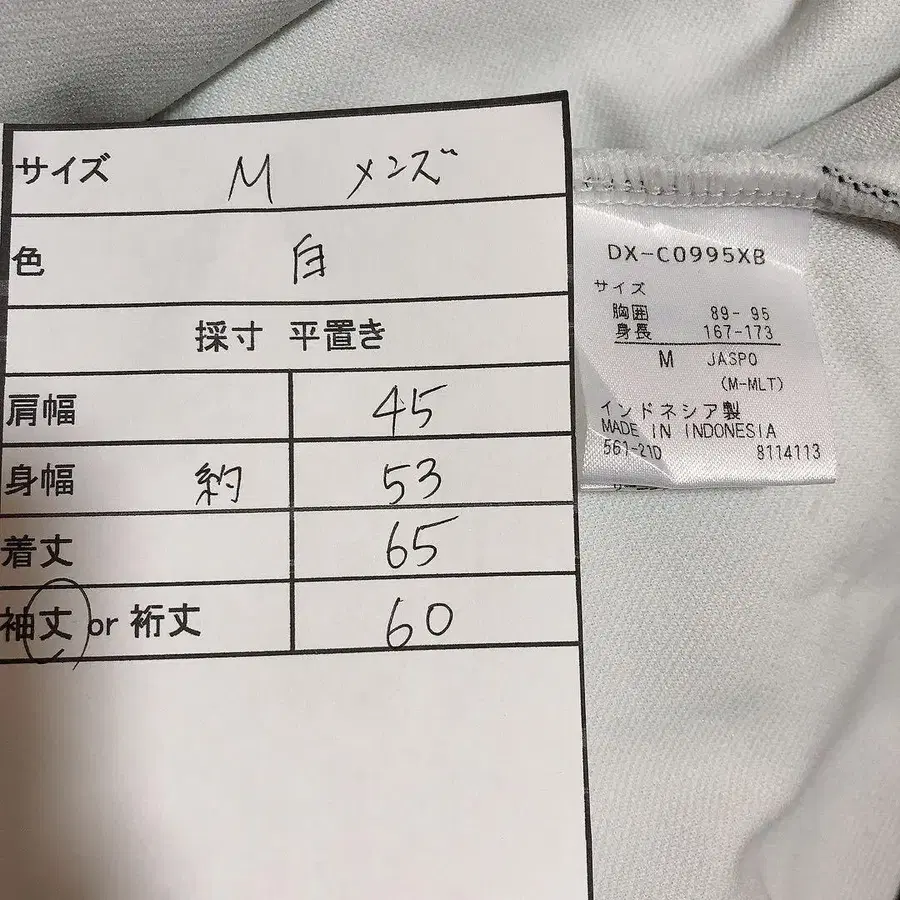 サイズ M メンズ
色 白
採寸 平置き
肩幅 45
身幅 約 53
着丈 65
袖丈 or 裄丈 60
DX-C0995XB
サイズ
胸囲 89-95
身長 167-173
M JASPO
(M-MLT)
インドネシア製
MADE IN INDONESIA
561-21D 8114113